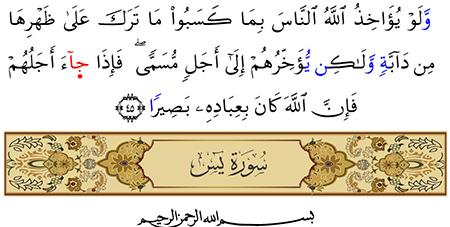 وَّلَوۡ يُؤَاخِذُ ٱللَّهُ ٱلنَّاسَ بِمَا كَسَبُواْ مَا تَرَكَ عَلَىٰ ظَهۡرِهَا
مِن دَآبَّةٖ وَّلَٰكِن يُّؤَخِّرُهُمۡ إِلَىٰٓ أَجَلٖ مُّسَمّٗىۖ فَإِذَا جَآءَ أَجَلُهُمۡ
فَإِنَّ ٱللَّهَ كَانَ بِعِبَادِهِۦ بَصِيرٗا ٤٥
سُورَةُ يسٓ
بسم الله الرحمن الرحيم